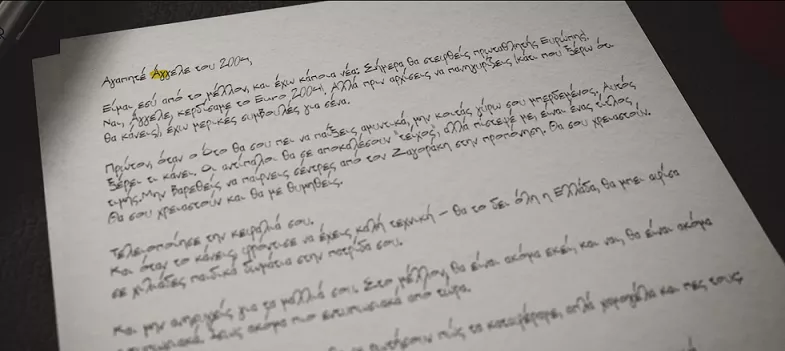 Αγαπητέ Άγγελε του 2004,
Είμαι εσύ από το μέλλον, και έχω κάποια νέα: Σήμερα θα στεφθείς πρωταθλητής Ευρώπης!
Ναι, Άγγελε, κερδίσαμε το Euro 2004! Αλλά πριν αρχίσεις να πανηγυρίζεις (κάτι που ξέρω ότι
θα κάνεις), έχω μερικές συμβουλές για σένα.
Πρώτον, όταν ο Ότο θα σου πει να παίξεις αμυντικά, μην κοιτάς γύρω σου μπερδεμένος. Αυτός
ξέρει τι κάνει. Οι αντίπαλοι θα σε αποκαλέσουν "τείχος", αλλά πίστεψέ με, είναι ένας τίτλος
τιμής. Μην βαρεθείς να παίρνεις σέντρες από τον Ζαγοράκη στην προπόνηση. Θα σου χρειαστούν.
Θα σου χρειαστούν και θα με θυμηθείς.
Τελειοποίησε την κεφαλιά σου.
Και όταν το κάνεις φρόντισε να έχεις καλή τεχνική – θα το δει όλη η Ελλάδα, θα μπει αφίσα
σε χιλιάδες παιδικά δωμάτια στην πατρίδα σου.
Και μην ανησυχείς για τα μαλλιά σου. Στο μέλλον, θα είναι ακόμα εκεί, και ναι, θα είναι ακόμα
εντυπωσιακά. Ίσως ακόμα πιο εντυπωσιακά από τώρα.
πώς τα καταφέραμε, απλά χαμογέλα και πες τους